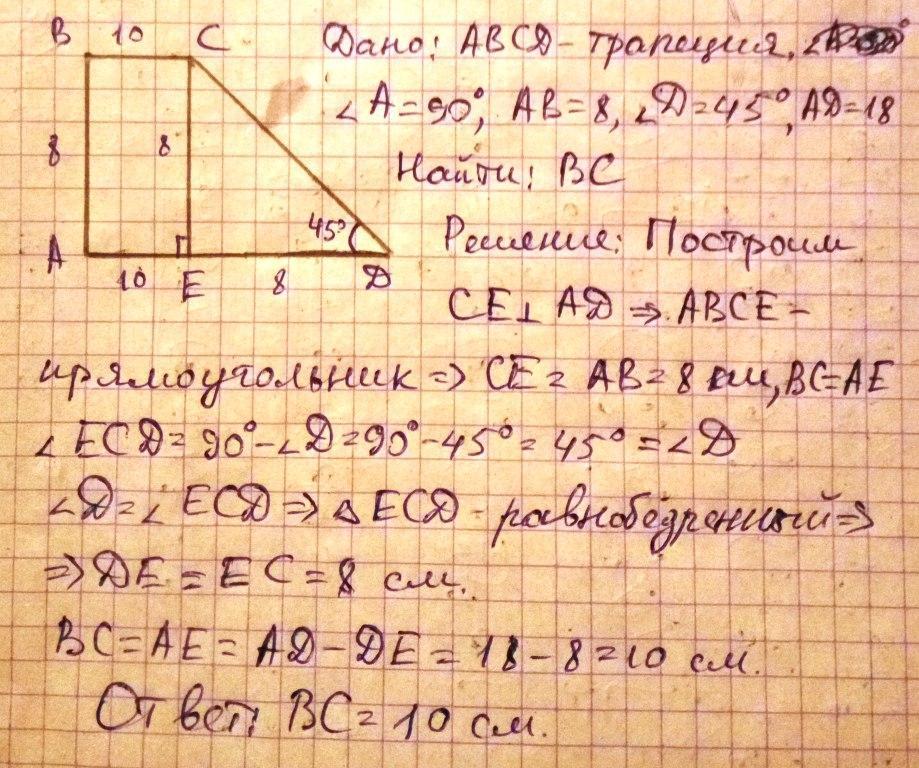 B 10 C
Дано: ABCD - трапеция,
∠A = 90°, AB = 8, ∠D = 45°, AD = 18
8 8
Найти: BC
45°
Решение: Построим
A 10 E 8 D
CE ⊥ AD ⇒ ABCE -
прямоугольник ⇒ CE = AB = 8 см, BC = AE
∠ECD = 90° - ∠D = 90° - 45° = 45° = ∠D
∠D = ∠ECD ⇒ △ECD - равнобедренный ⇒
⇒ DE = EC = 8 см.
BC = AE = AD - DE = 18 - 8 = 10 см.
Ответ: BC = 10 см.